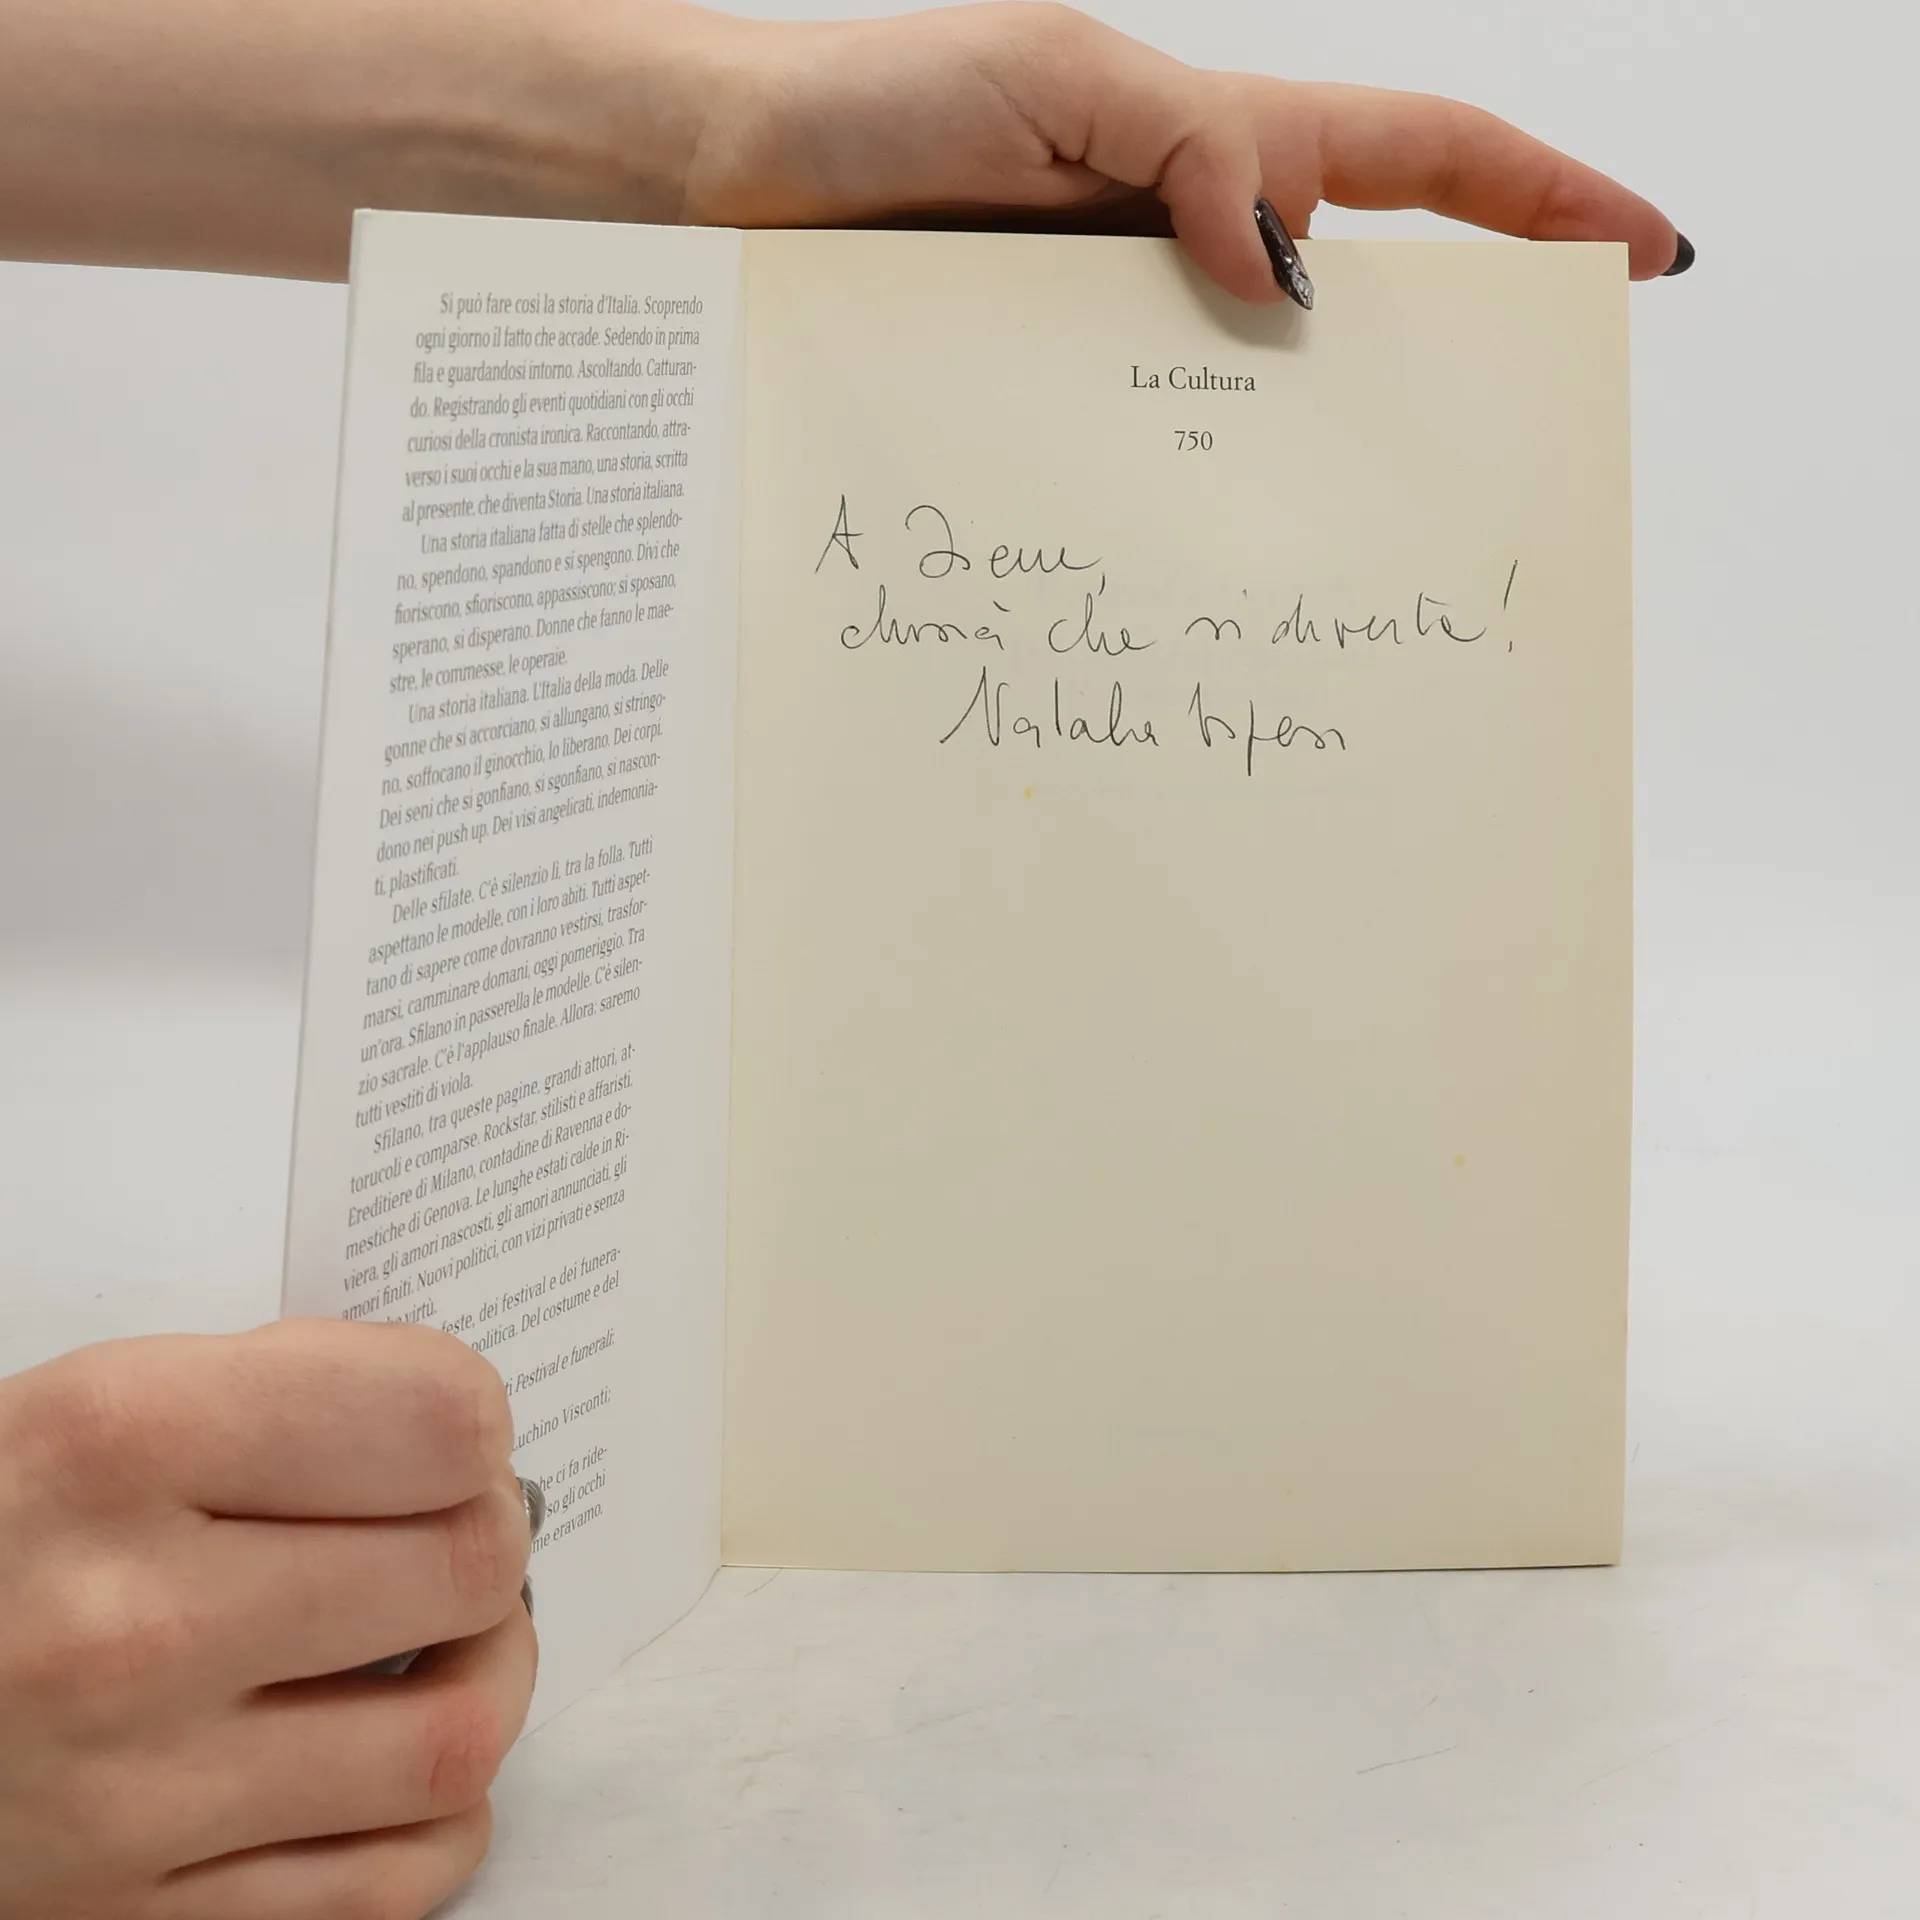 Si può fare così la storia d'Italia. Scoprendo
ogni giorno il fatto che accade. Sedendo in prima
fila e guardandosi intorno. Ascoltando. Catturan-
do. Registrando gli eventi quotidiani con gli occhi
curiosi della cronista ironica. Raccontando, attra-
verso i suoi occhi e la sua mano, una storia, scritta
al presente, che diventa Storia. Una storia italiana.
Una storia italiana fatta di stelle che splendo-
no, spendono, spandono e si spengono. Divi che
fioriscono, sfioriscono, appassiscono; si sposano,
sperano, si disperano. Donne che fanno le mae-
stre, le commesse, le operaie.
Una storia italiana. L'Italia della moda. Delle
gonne che si accorciano, si allungano, si stringo-
no, soffocano il ginocchio, lo liberano. Dei corpi.
Dei seni che si gonfiano, si sgonfiano, si nascon-
dono nei push up. Dei visi angelicati, indemonia-
ti, plastificati.
Delle sfilate. C'è silenzio lì, tra la folla. Tutti
aspettano le modelle, con i loro abiti. Tutti aspet-
tano di sapere come dovranno vestirsi, trasfor-
marsi, camminare domani, oggi pomeriggio. Tra
un'ora. Sfilano in passerella le modelle. C'è silen-
zio sacrale. C'è l'applauso finale. Allora: saremo
tutti vestiti di viola.
Sfilano, tra queste pagine, grandi attori, at-
torucoli e comparse. Rockstar, stilisti e affaristi.
Ereditiere di Milano, contadine di Ravenna e do-
mestiche di Genova. Le lunghe estati calde in Ri-
viera, gli amori nascosti, gli amori annunciati, gli
amori finiti. Nuovi politici, con vizi privati e senza
virtù.
feste, dei festival e dei funera-
politica. Del costume e del
ti Festival e funerali.
uchino Visconti;
he ci fa ride-
so gli occhi
me eravamo.
La Cultura
750
A Irene,
chissà che si diverta!
Natalia Aspesi